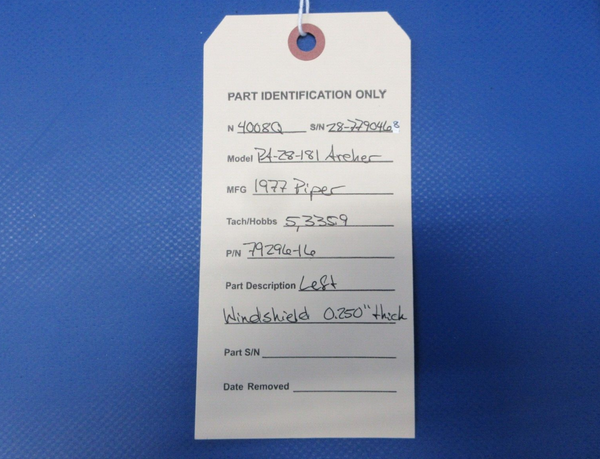 PART IDENTIFICATION ONLY
N 4008Q S/N 28-7790468
Model PA-28-181 Archer
MFG 1977 Piper
Tach/Hobbs 5,335.9
P/N 79296-16
Part Description Left
Windshield 0.250" thick
Part S/N
Date Removed